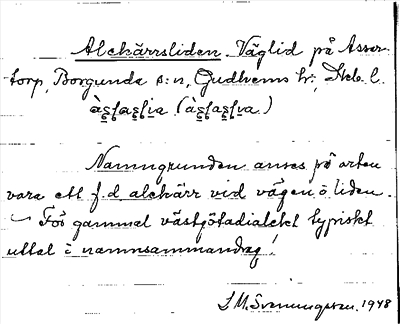 Alekärrsliden. Väglid på Assar-
torp, Borgunda s:n, Gudhems hd; Skb. l.
Namngrunden anses på orten
vara ett f.d alekärr vid vägen ö liden.
För gammal västgötadialekt typiskt
uttal i namnsammandrag!
S.M. Svenungsson. 1948